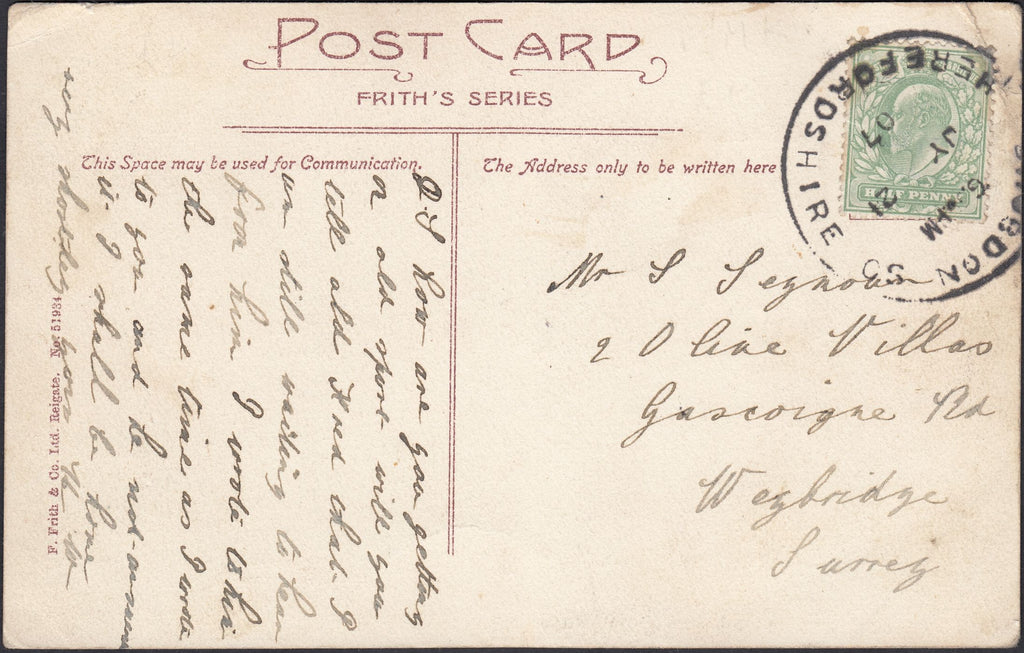 POST CARD
FRITH'S SERIES
This Space may be used for Communication.
The Address only to be written here
HALF PENNY
HEREFORDSHIRE
JY 21
07
D. S How are you getting
on old sport will you
tell old Fred that I
am still waiting to hear
from him I wrote to him
the same time as I wrote
to you and he not answered
it. I shall be home
very shortly from
Mr S Seymour
2 Oline Villas
Gascoigne Rd
Weybridge
Surrey
F. Frith & Co. Ltd. Reigate. No. 51934